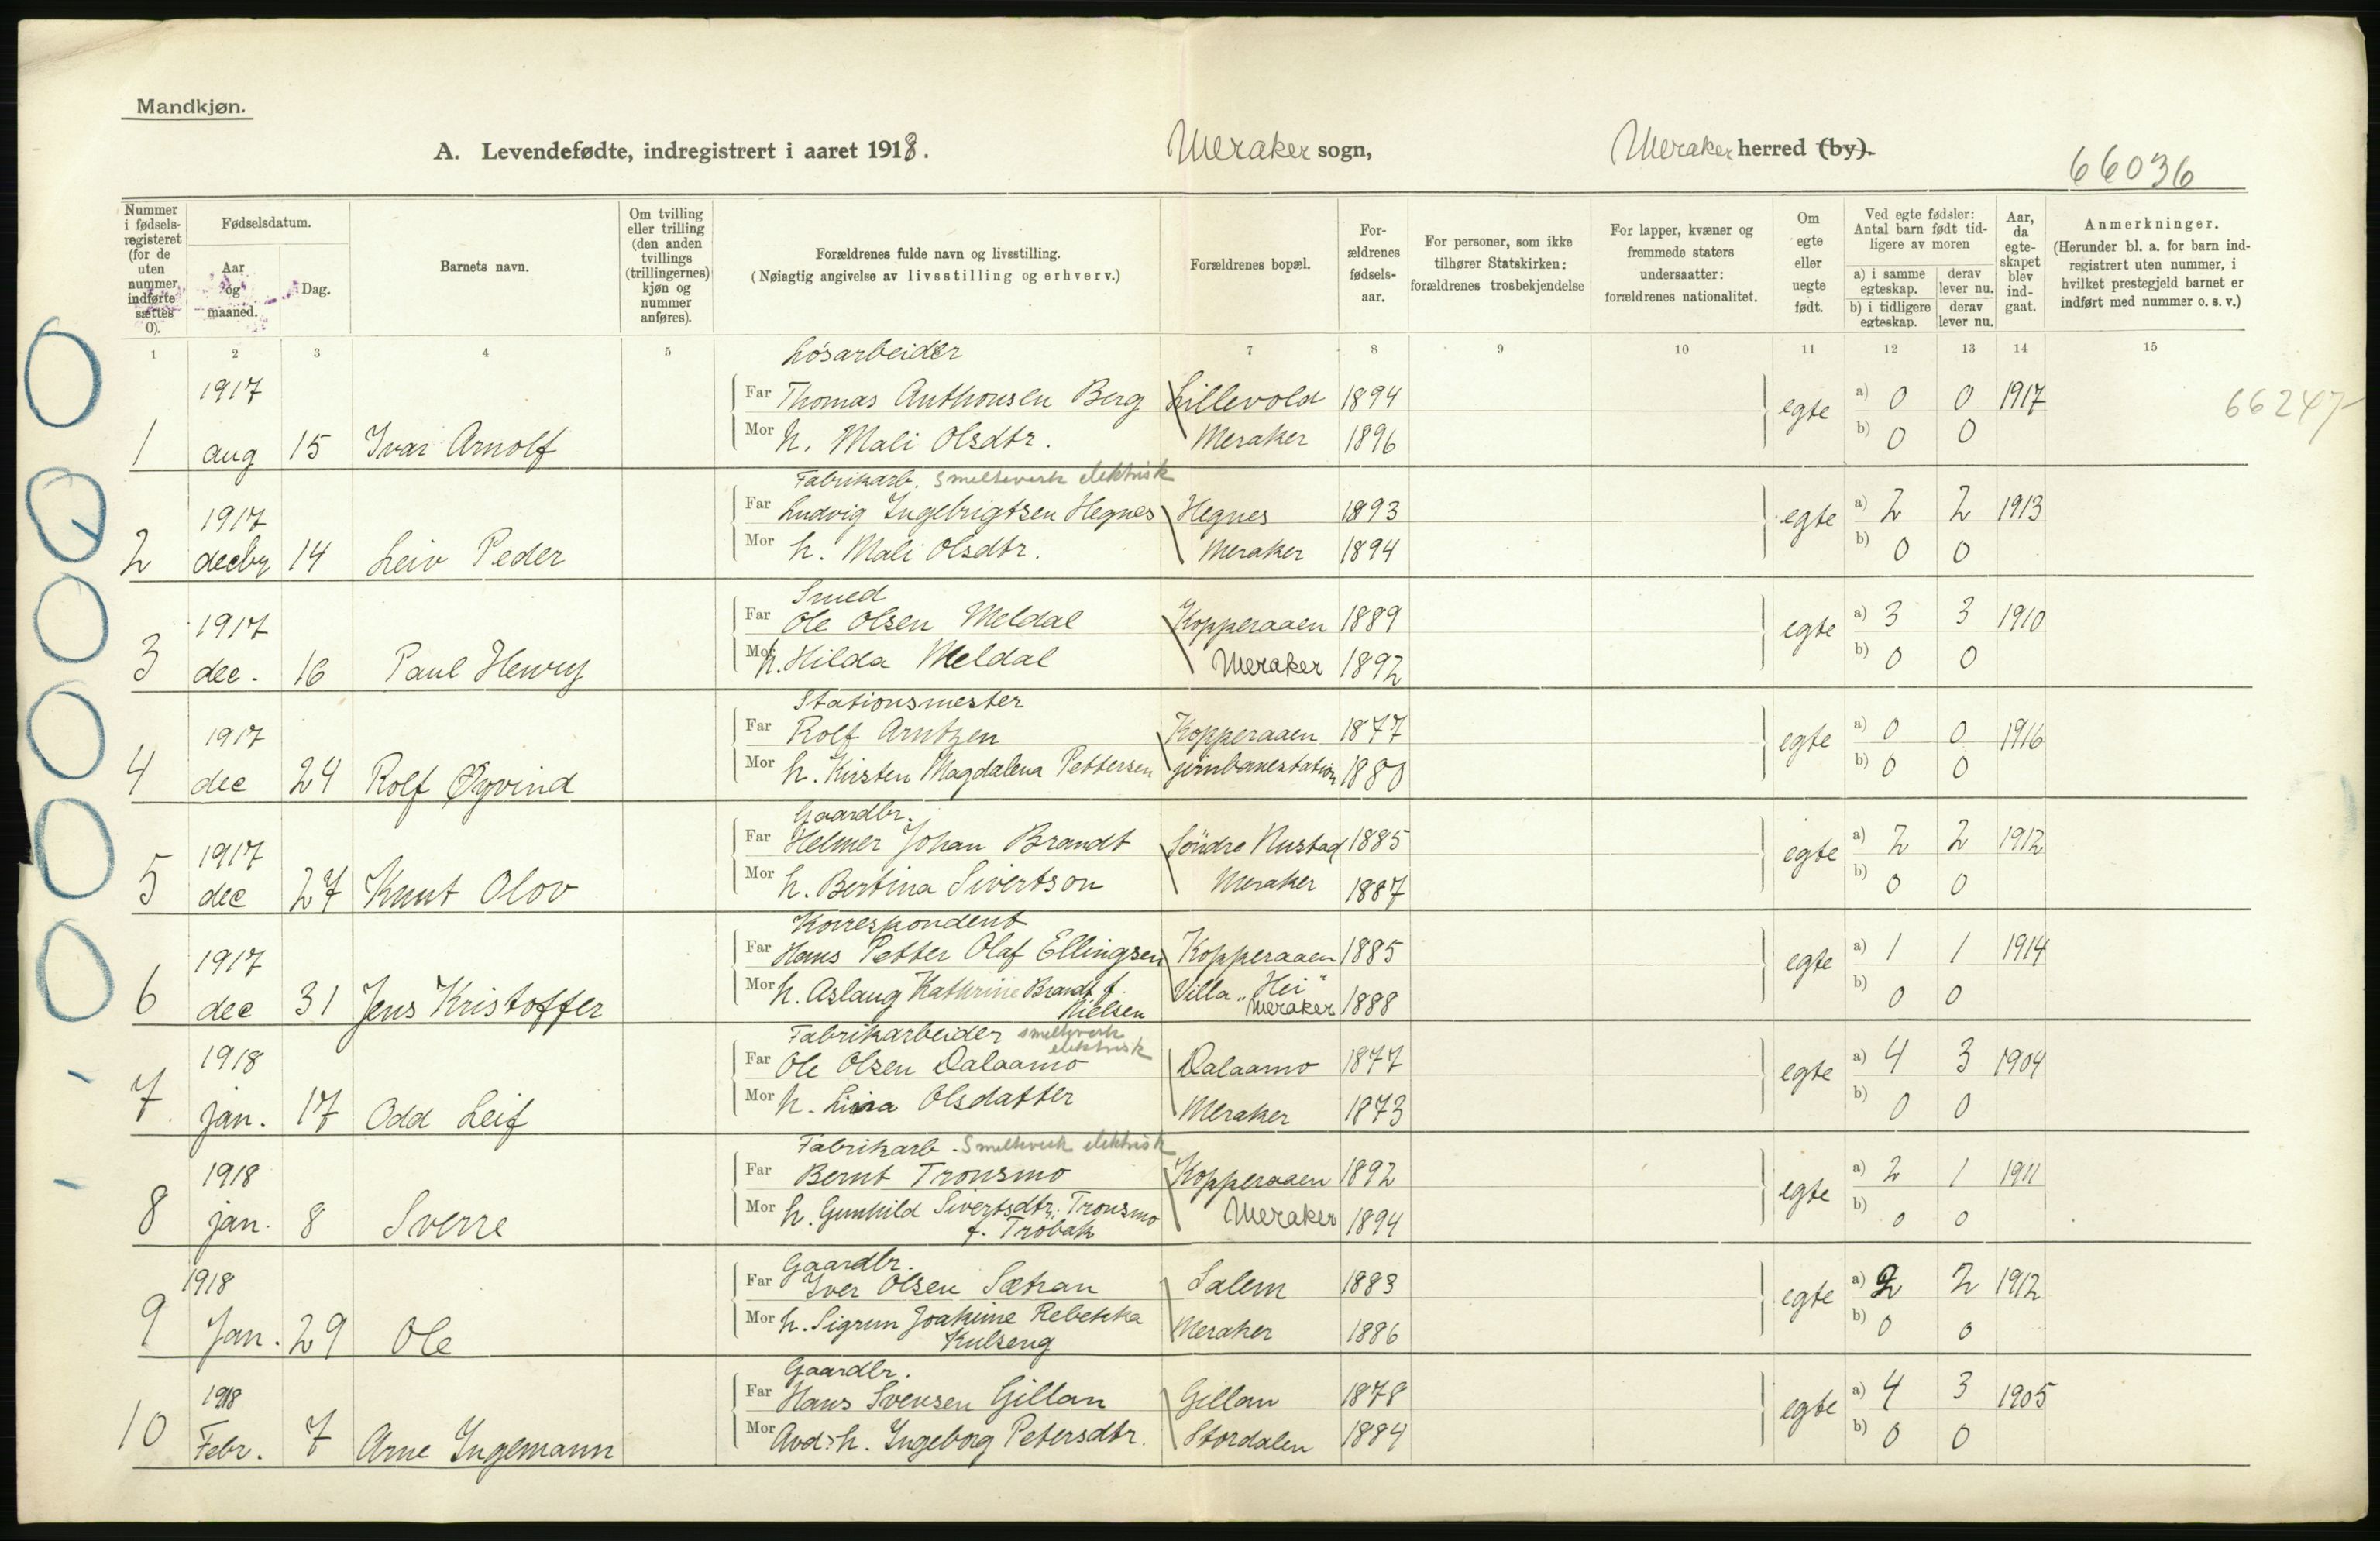 Mandkjøn.
A. Levendefødte, indregistrert i aaret 1918. Meraker sogn, Meraker herred (by).
66036
Nummer i fødselsregisteret (for de uten nummer indførte sættes 0).
Fødselsdatum.
Aar og maaned.
Dag.
Barnets navn.
Om tvilling eller trilling (den anden tvillings (trillingernes) kjøn og nummer anføres).
Forældrenes fulde navn og livsstilling.
(Nøiagtig angivelse av livsstilling og erhverv.)
Forældrenes bopæl.
Forældrenes fødselsaar.
For personer, som ikke tilhører Statskirken: forældrenes trosbekjendelse
For lapper, kvæner og fremmede staters undersaatter: forældrenes nationalitet.
Om egte eller uegte født.
Ved egte fødsler: Antal barn født tidligere av moren
a) i samme egteskap. derav lever nu.
b) i tidligere egteskap. derav lever nu.
Aar, da egteskapet blev indgaat.
Anmerkninger.
(Herunder bl. a. for barn indregistrert uten nummer, i hvilket prestegjeld barnet er indført med nummer o. s. v.)
1 2 3 4 5 7 8 9 10 11 12 13 14 15
Løsarbeider
1917 Far Thomas Anthonsen Berg Lillevold 1894 egte a) 0 0 1917 66247
1 aug 15 Ivar Arnolf Mor h. Mali Olsdtr. Meraker 1896 b) 0 0
Fabrikarb. Smelteverk elektrisk
1917 Far Ludvig Ingebrigtsen Hegnes Hegnes 1893 egte a) 2 2 1913
2 decbr 14 Leiv Peder Mor h. Mali Olsdtr. Meraker 1894 b) 0 0
Smed
1917 Far Ole Olsen Meldal Kopperaaen 1889 egte a) 3 3 1910
3 dec. 16 Paul Henry Mor h. Hilda Meldal Meraker 1892 b) 0 0
Stationsmester
1917 Far Rolf Arntzen Kopperaaen 1877 egte a) 0 0 1916
4 dec 24 Rolf Øyvind Mor h. Kirsten Magdalena Pettersen jernbanestation 1880 b) 0 0
Gaardbr.
1917 Far Helmer Johan Brandt Søndre Nustad 1885 egte a) 2 2 1912
5 dec 27 Knut Olov Mor h. Bertina Sivertson Meraker 1887 b) 0 0
Korrespondent
1917 Far Hans Petter Olaf Ellingsen Kopperaaen 1885 egte a) 1 1 1914
6 dec 31 Jens Kristoffer Mor h. Aslaug Kathrine Brandt f. Nielsen Villa „Hei" Meraker 1888 b) 0 0
Fabrikarbeider smelteverk elektrisk
1918 Far Ole Olsen Dalaamo Dalaamo 1877 egte a) 4 3 1904
7 jan. 17 Odd Leif Mor h. Lina Olsdatter Meraker 1873 b) 0 0
Fabrikarb. Smelteverk elektrisk
1918 Far Bernt Tronsmo Kopperaaen 1892 egte a) 2 1 1911
8 jan. 8 Sverre Mor h. Gunhild Sivertsdtr. Tronsmo f. Trøbak Meraker 1894 b) 0 0
Gaardbr.
1918 Far Iver Olsen Sætran Salem 1883 egte a) 2 2 1912
9 Jan. 29 Ole Mor h. Sigrun Joakime Rebekka Kulseng Meraker 1886 b) 0 0
Gaardbr.
1918 Far Hans Svensen Gillan Gillan 1878 egte a) 4 3 1905
10 Febr. 7 Arne Ingemann Mor Avd: h. Ingeborg Petersdtr. Stordalen 1884 b) 0 0